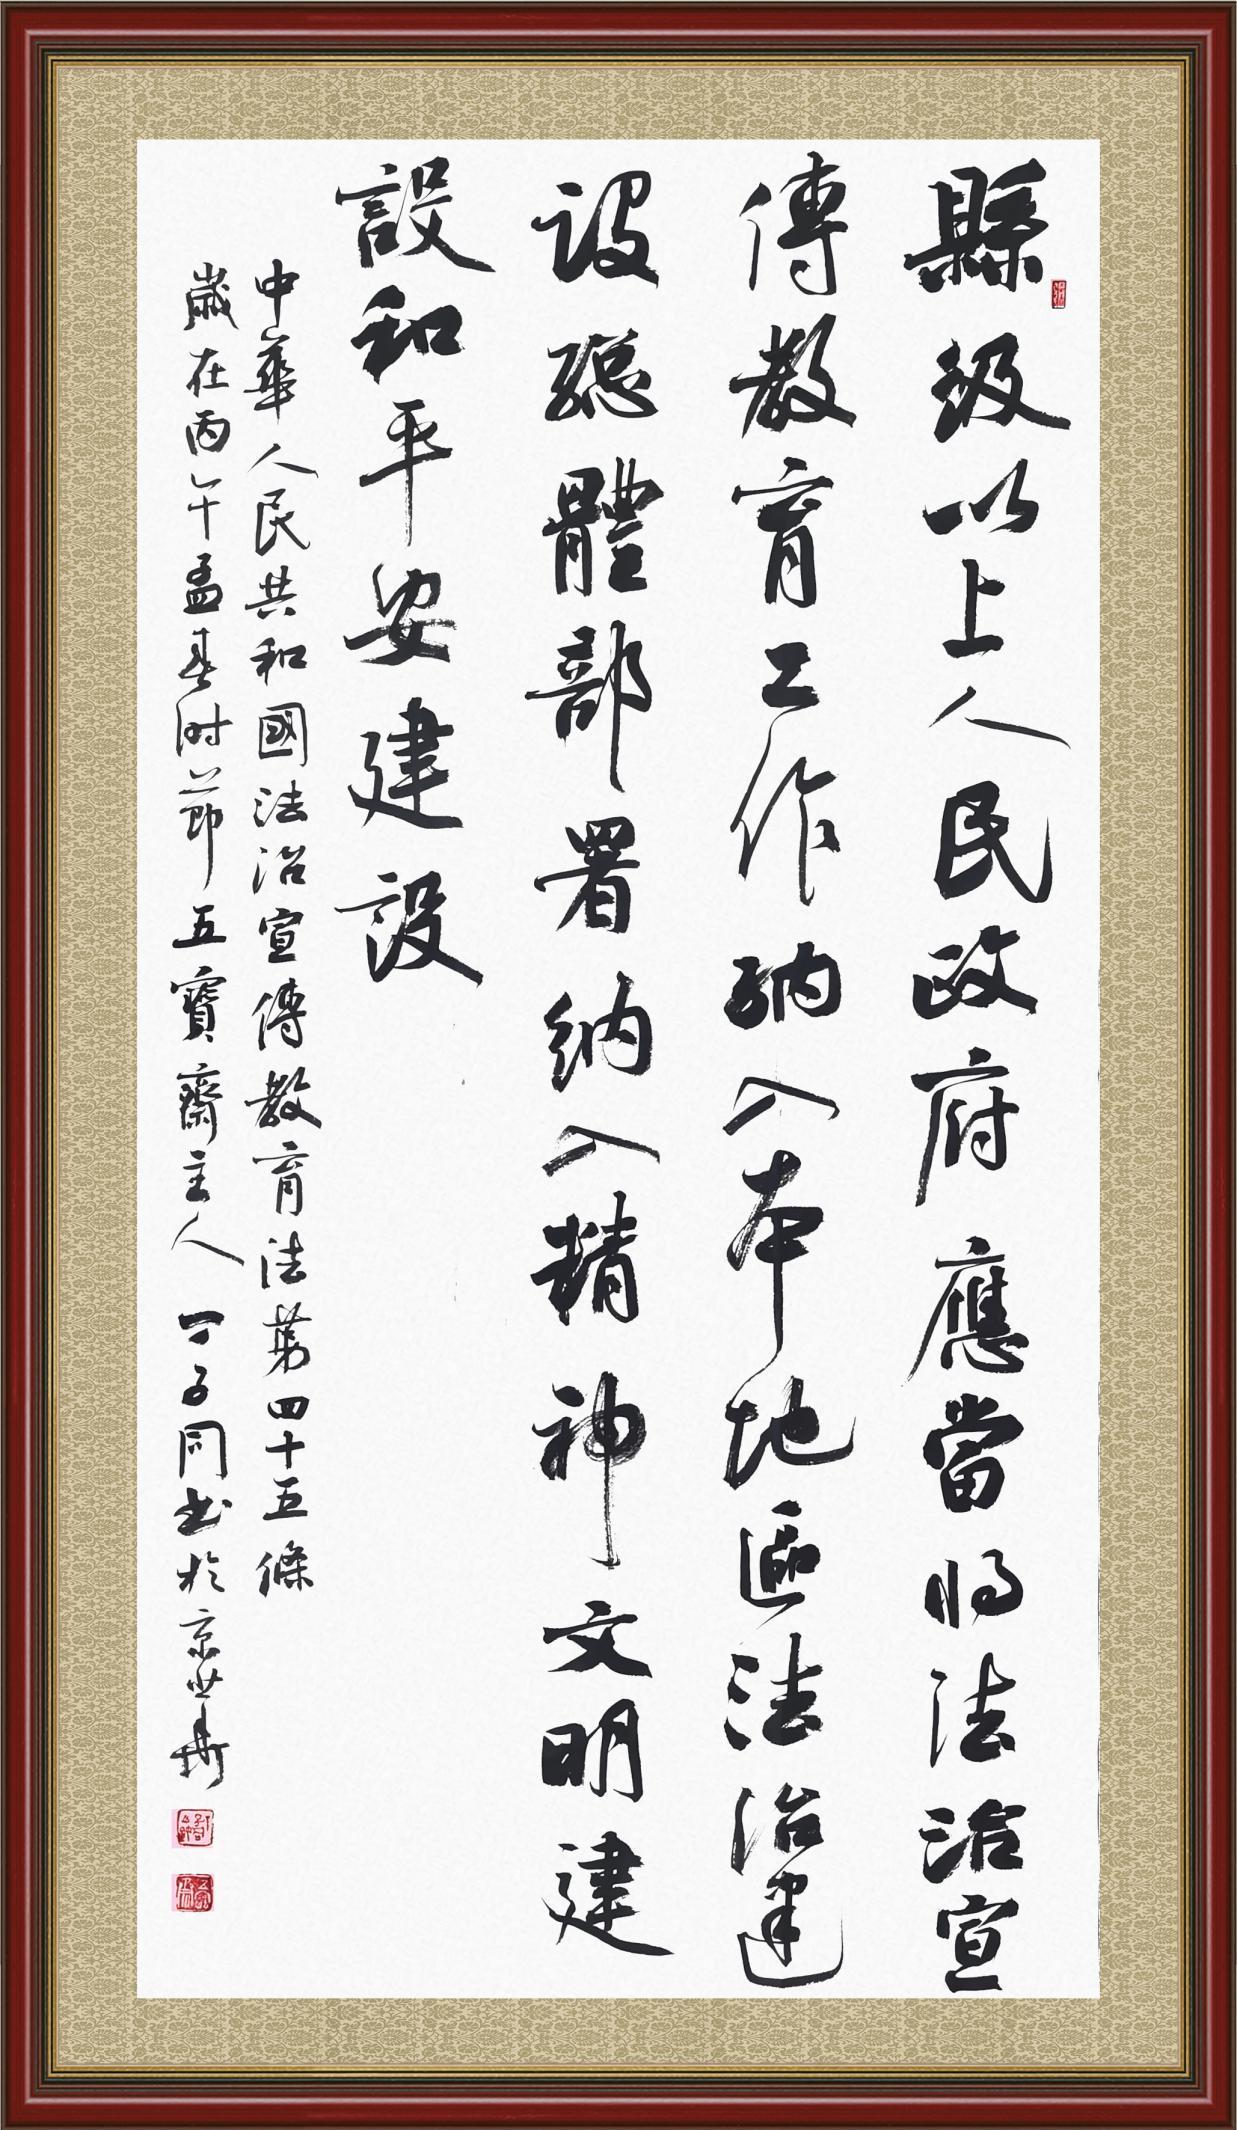 縣級以上人民政府應當將法治宣
傳教育工作納入本地區法治建
設總體部署納入精神文明建
設和平安建設
中華人民共和國法治宣傳教育法第四十五條
歲在丙午孟春时節五寳齋主人丁子同书於京